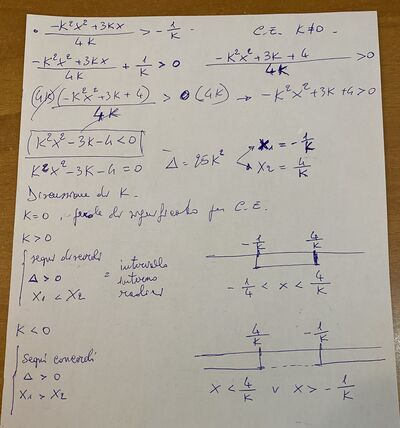 • (-K²x² + 3Kx)/4K > -1/K · C.E. K≠0
(-K²x² + 3Kx)/4K + 1/K > 0 (-K²x² + 3K + 4)/4K > 0
(4K) (-K²x² + 3K + 4)/4K > 0 (4K) → -K²x² + 3K + 4 > 0
K²x² - 3K - 4 < 0
K²x² - 3K - 4 = 0 Δ = 25K² x₁ = -1/K
x₂ = 4/K
Discussione di K.
K=0, perde di significato per C.E.
K>0
segni discordi
Δ > 0 = intervallo interno radici
x₁ < x₂
-1/K 4/K
-1/4 < x < 4/K
K < 0
segni concordi
Δ > 0
x₁ > x₂
4/K -1/K
x < 4/K v x > -1/K